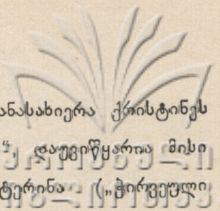 ანასახიერა ქრისტინეს
“, დაუვიწყარია მისი
ტერინა („პირველი